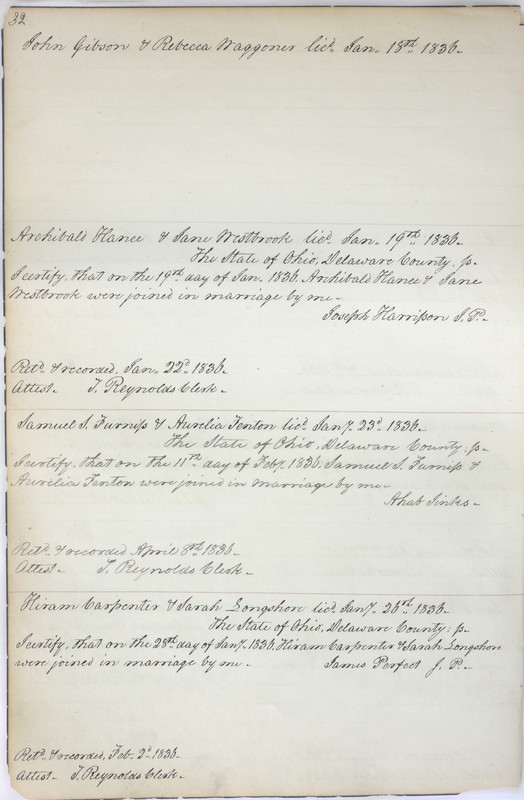 32
John Gibson & Rebecca Waggoner licd. Jan. 18th 1836.
Archibald Hance & Jane Westbrook licd. Jan. 19th 1836.
The State of Ohio, Delaware County; ss.
I certify, that on the 19th day of Jan. 1836, Archibald Hance & Jane
Westbrook were joined in marriage by me.
Joseph Harrison J. P.
Retd. & recorded, Jan. 22d 1836.
Attest. T. Reynolds Clerk.
Samuel S. Furniss & Aurelia Fenton licd. Jany. 23d 1836.
The State of Ohio, Delaware County; ss.
I certify, that on the 11th day of Feby. 1836. Samuel S. Furniss &
Aurelia Fenton were joined in marriage by me.
Ahab Jinks.
Retd. & recorded April 8th 1836.
Attest. T. Reynolds Clerk.
Hiram Carpenter & Sarah Longshore licd. Jany. 26th 1836.
The State of Ohio, Delaware County; ss.
I certify, that on the 28th day of Jany. 1836, Hiram Carpenter & Sarah Longshore
were joined in marriage by me. James Perfect J. P.
Retd. & recorded, Feb. 2d 1836.
Attest. T. Reynolds Clerk.